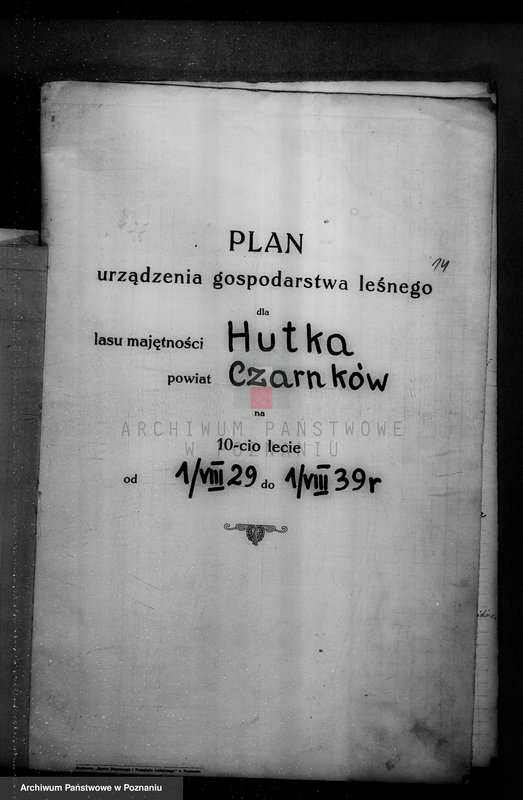 PLAN
urządzenia gospodarstwa leśnego
14
dla
lasu majętności Hutka
powiat Czarnków
na
ARCHIWUM PAŃSTWOWE
W POZNANIU
10-cio lecie
od 1/VIII 29 do 1/VIII 39 r
Archiwum Państwowe w Poznaniu